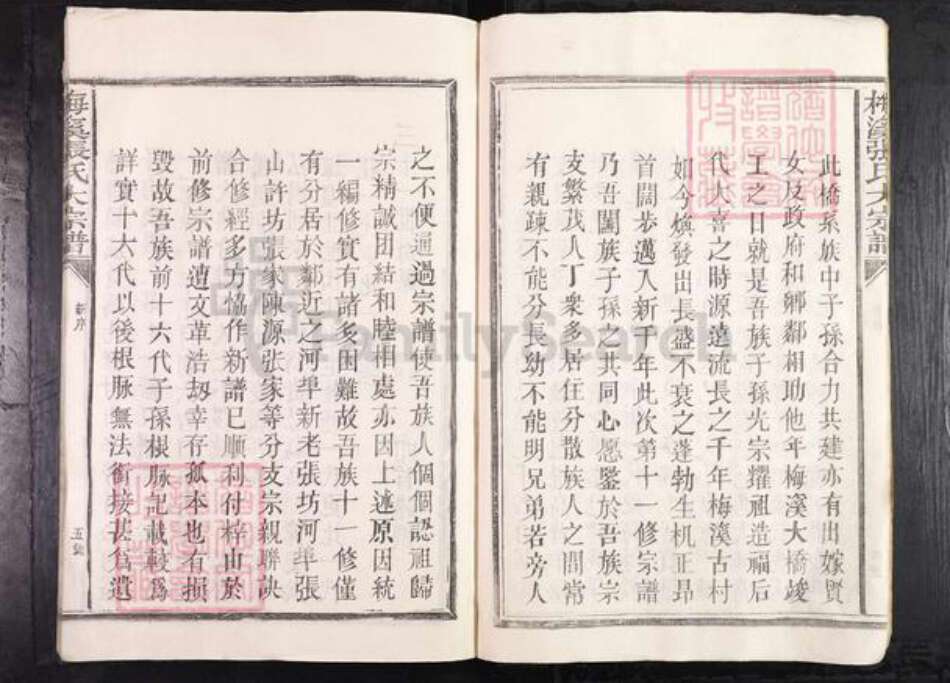 梅溪張氏大宗譜
此橋系族中子孫合力共建亦有出嫁賢
女及政府和鄉鄰相助他年梅溪大橋竣
工之日就是吾族子孫光宗耀祖造福后
代大喜之時源遠流長之千年梅溪古村
如今煥發出長盛不衰之蓬勃生机正昂
首闊步邁入新千年此次第十一修宗譜
乃吾闔族子孫之共同心愿鑒於吾族宗
支繁茂人丁衆多居住分散族人之間常
有親疎不能分長幼不能明兄弟若旁人
之不便通過宗譜使吾族人個個認祖歸
宗精誠团結和睦相處亦因上述原因統
一編修實有諸多困難故吾族十一修僅
有分居於鄰近之河埠新老張坊河埠張
山許坊張家陳源张家等分支宗親聯訣
合修經多方恊作新譜已順利付梓由於
前修宗譜遭文革浩劫幸存孤本也有損
毁故吾族前十六代子孫根脉記載較爲
詳實十六代以後根脉無法銜接甚爲遺
梅溪張氏大宗譜
新序
FamilySearch